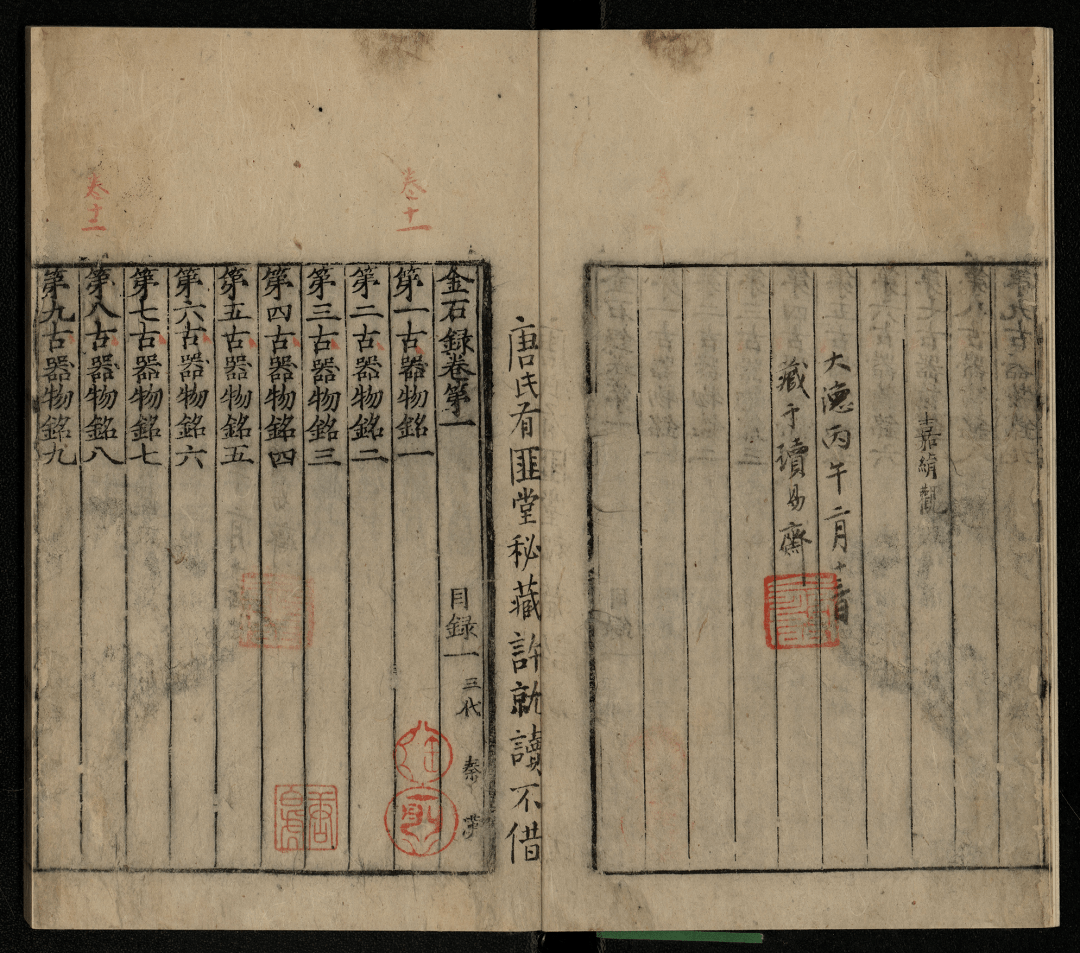 嘉絹觀
大德丙午二月
藏于讀易齋
唐氏有匪堂秘藏許就讀不借
金石録卷第一
目録一 三代 秦 漢
第一古器物銘一
第二古器物銘二
第三古器物銘三
第四古器物銘四
第五古器物銘五
第六古器物銘六
第七古器物銘七
第八古器物銘八
第九古器物銘九
卷十一
卷十二